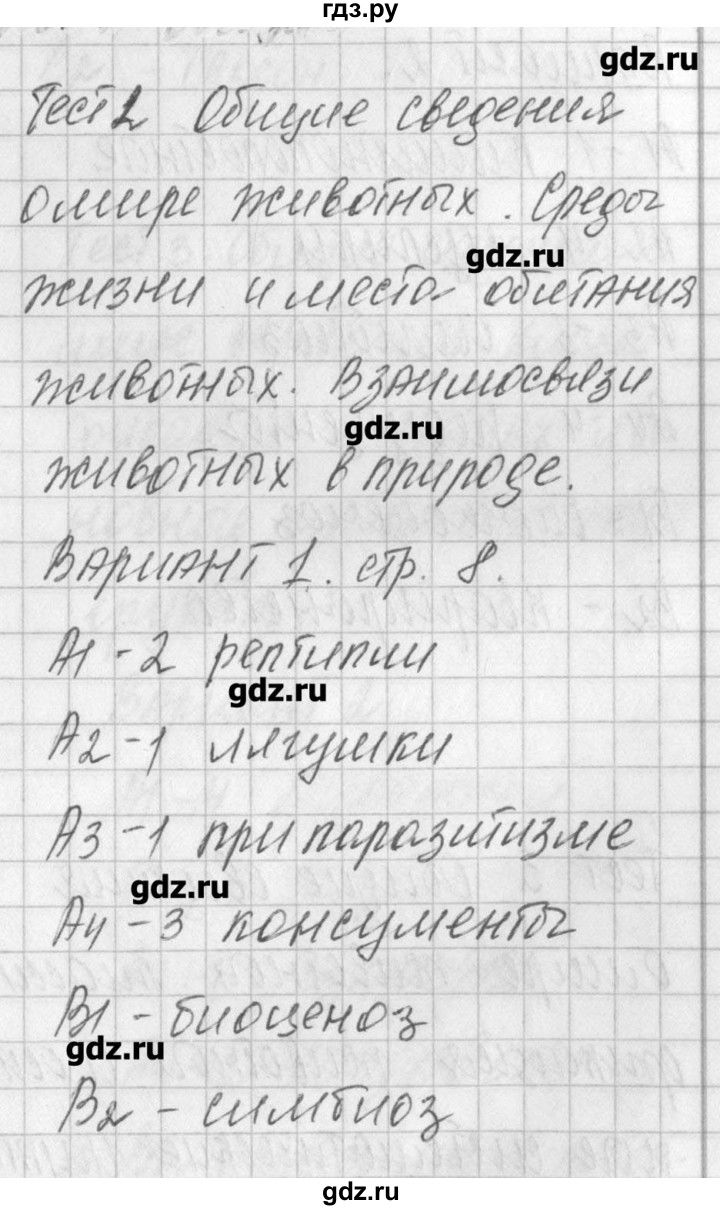 гдз.ру
gdz.ru
Тест 2 Общие сведения
о мире животных. Среды
gdz.ru
жизни и места обитания
животных. Взаимосвязи
gdz.ru
животных в природе.
Вариант 1. стр. 8.
А1 - 2 рептилии
gdz.ru
А2 - 1 лягушки
А3 - 1 при паразитизме
gdz.ru
А4 - 3 консументы
В1 - биоценоз
gdz.ru
В2 - симбиоз
gdz.ru